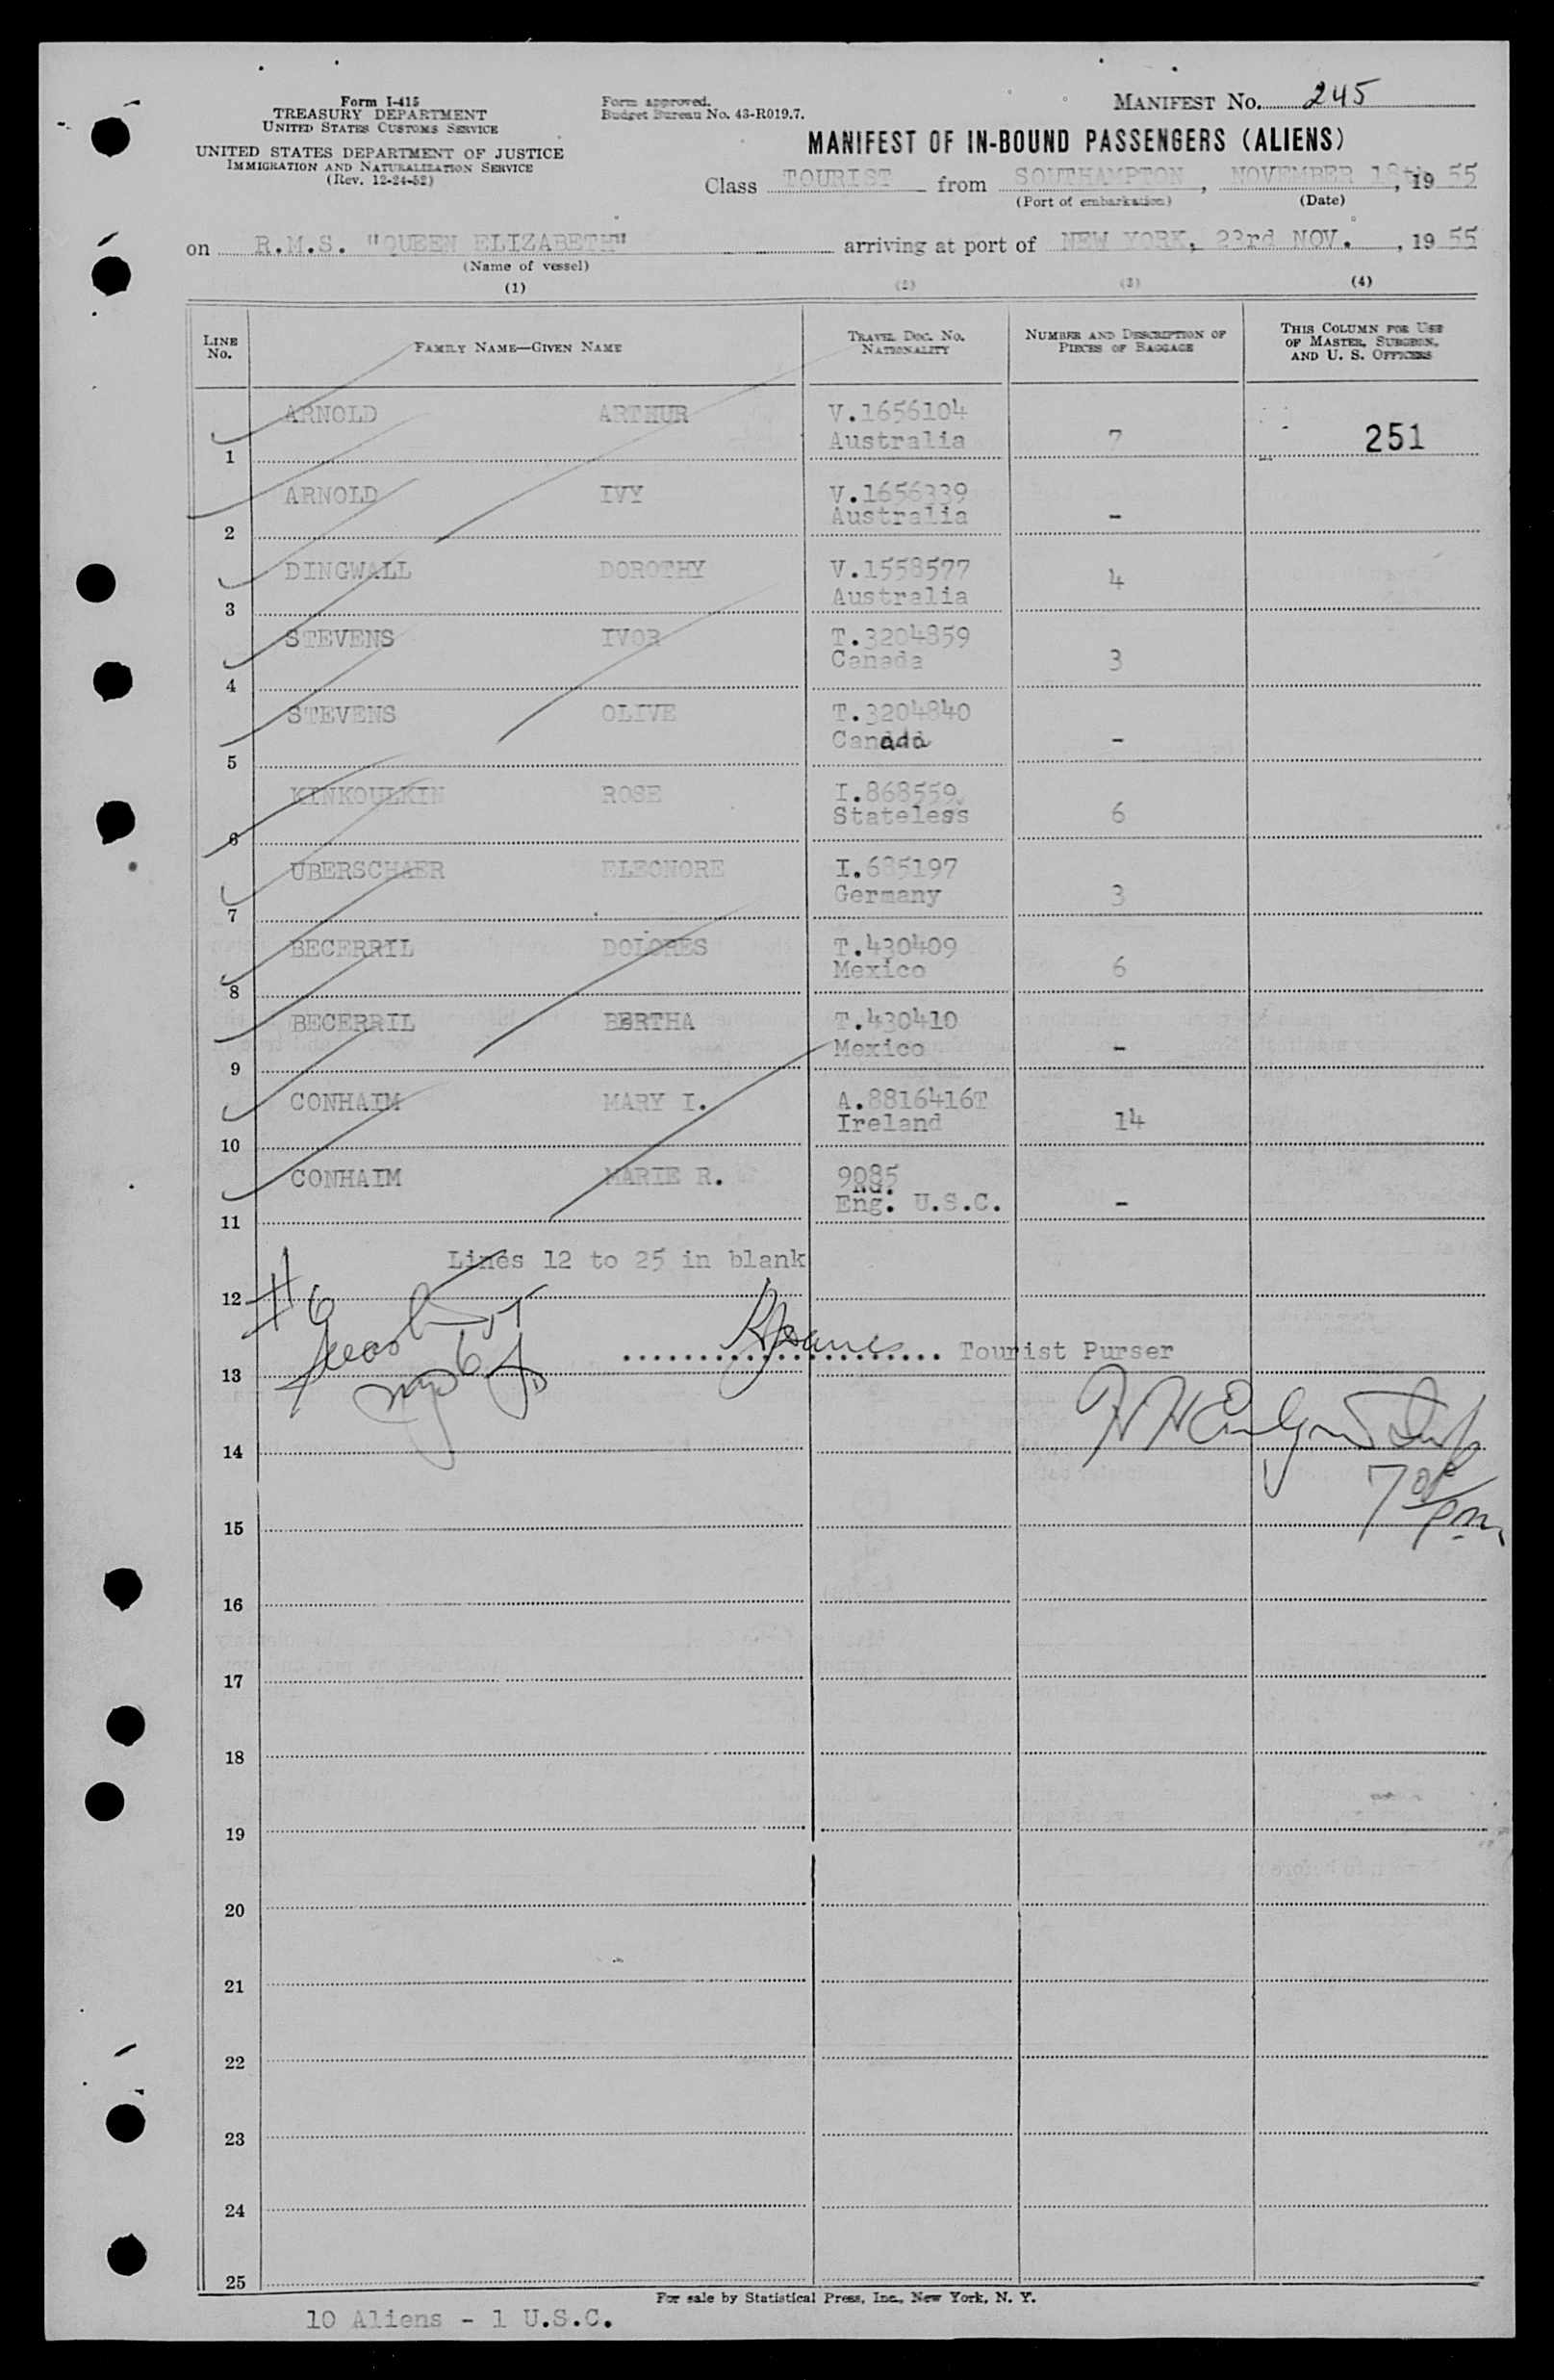 Form I-415
TREASURY DEPARTMENT
UNITED STATES CUSTOMS SERVICE
UNITED STATES DEPARTMENT OF JUSTICE
IMMIGRATION AND NATURALIZATION SERVICE
(Rev. 12-24-52)
Form approved.
Budget Bureau No. 43-R019.7.
MANIFEST No. 245
MANIFEST OF IN-BOUND PASSENGERS (ALIENS)
Class TOURIST from SOUTHAMPTON, NOVEMBER 18th, 19 55
(Port of embarkation) (Date)
on R.M.S. "QUEEN ELIZABETH" arriving at port of NEW YORK, 23rd NOV. , 19 55
(Name of vessel)
(1) (2) (3) (4)
LINE No. FAMILY NAME—GIVEN NAME TRAVEL DOC. No. NATIONALITY NUMBER AND DESCRIPTION OF PIECES OF BAGGAGE THIS COLUMN FOR USE OF MASTER, SURGEON, AND U. S. OFFICERS
1 ARNOLD ARTHUR V.1656104 Australia 7 251
2 ARNOLD IVY V.1656339 Australia -
3 DINGWALL DOROTHY V.1558577 Australia 4
4 STEVENS IVOR T.3204859 Canada 3
5 STEVENS OLIVE T.3204840 Canada -
6 KINKOULKIN ROSE I.868559 Stateless 6
7 UBERSCHAER ELEONORE I.685197 Germany 3
8 BECERRIL DOLORES T.430409 Mexico 6
9 BECERRIL BERTHA T.430410 Mexico -
10 CONHAIM MARY I. A.8816416T Ireland 14
11 CONHAIM MARIE R. 9085 Eng. U.S.C. -
Lines 12 to 25 in blank
12 #6
13 Tourist Purser
14
7 pm
15
16
17
18
19
20
21
22
23
24
25
For sale by Statistical Press, Inc., New York, N. Y.
10 Aliens - 1 U.S.C.